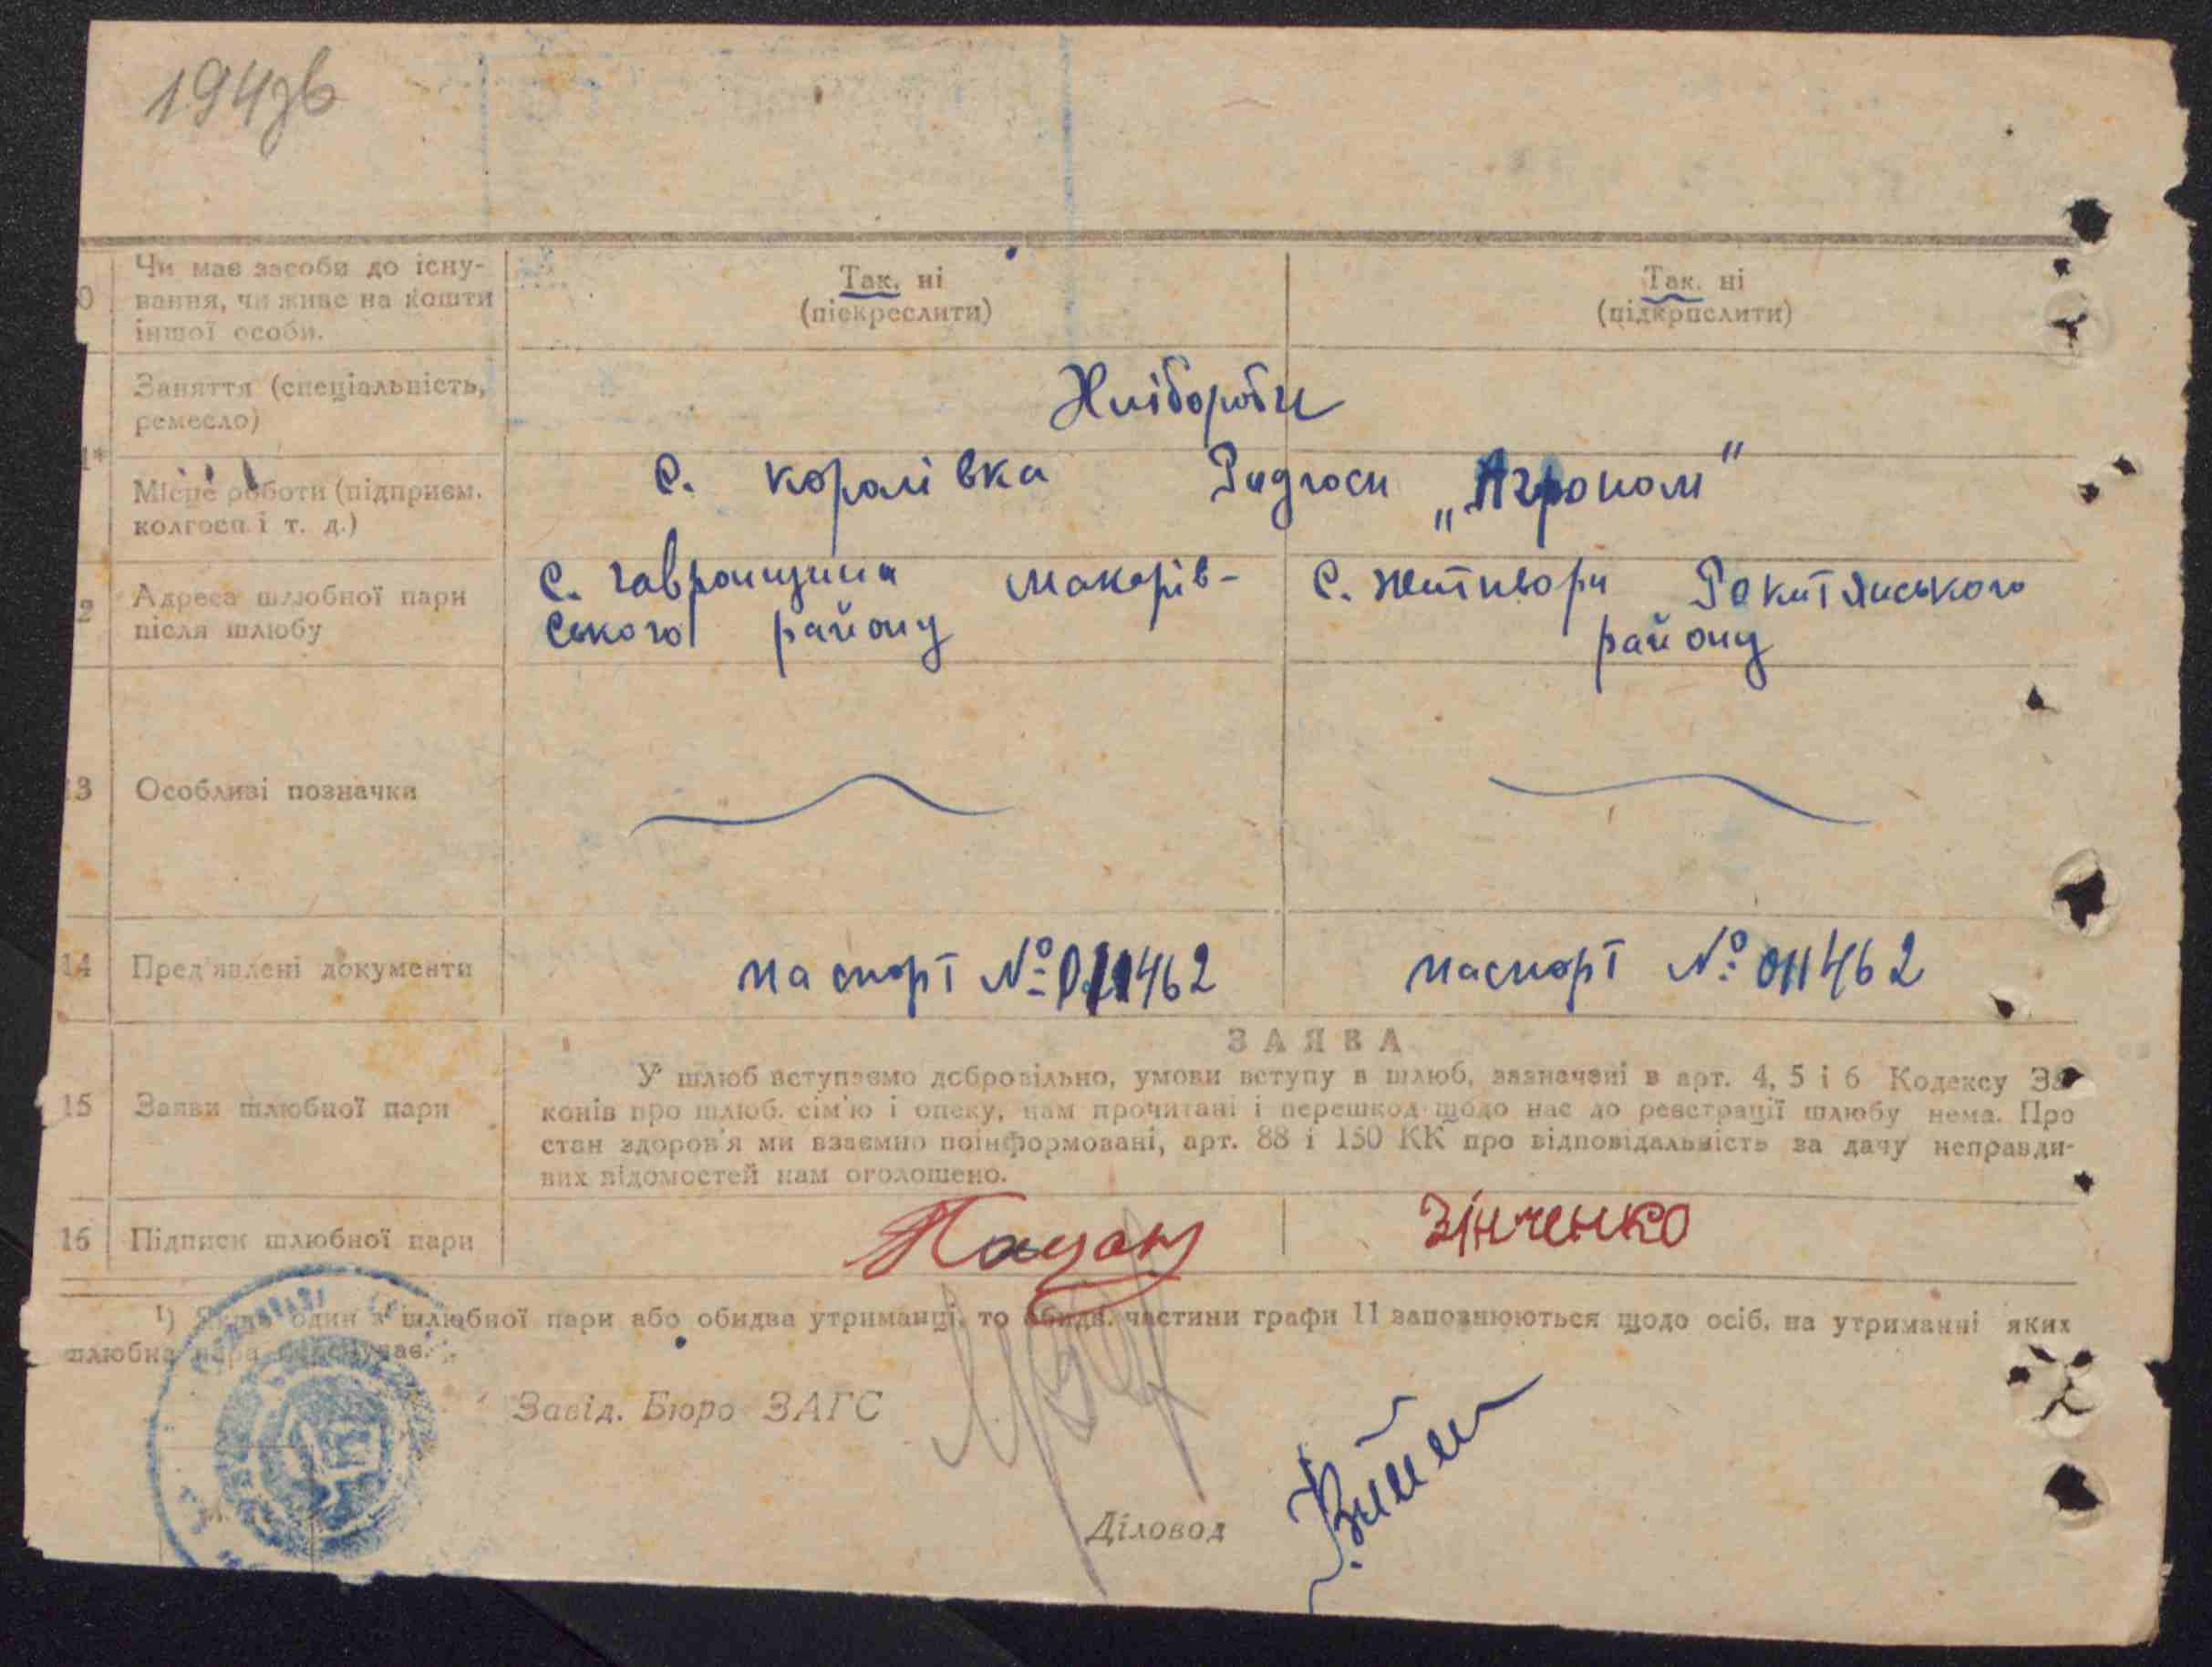 1943 в
0 Чи має засоби до існу-
вання, чи живе на кошти
іншої особи.
Так, ні
(піекреслити)
Так, ні
(підкрпслити)
Заняття (спеціальність,
ремесло)
Хлібороби
1*
Місце роботи (підприєм.
колгосп і т. д.)
с. Королівка Радгосп „Агроном"
2 Адреса шлюбної пари
після шлюбу
с. Гавронщина Макарів-
ського району
с. Житньори Рокитянського
району
13 Особливі позначки
14 Пред'явлені документи
паспорт № 011462
паспорт № 011462
ЗАЯВА
15 Заяви шлюбної пари
У шлюб вступаємо добровільно, умови вступу в шлюб, зазначені в арт. 4, 5 і 6 Кодексу За
конів про шлюб, сім'ю і опеку, нам прочитані і перешкод щодо нас до реєстрації шлюбу нема. Про
стан здоров'я ми взаємно поінформовані, арт. 88 і 150 КК про відповідальність за дачу неправди-
вих відомостей нам оголошено.
16 Підписи шлюбної пари
Зінченко
¹) Якщо один з шлюбної пари або обидва утриманці, то обидв. частини графи 11 заповнюються щодо осіб, на утриманні яких
шлюбна пара
Завід. Бюро ЗАГС
Діловод